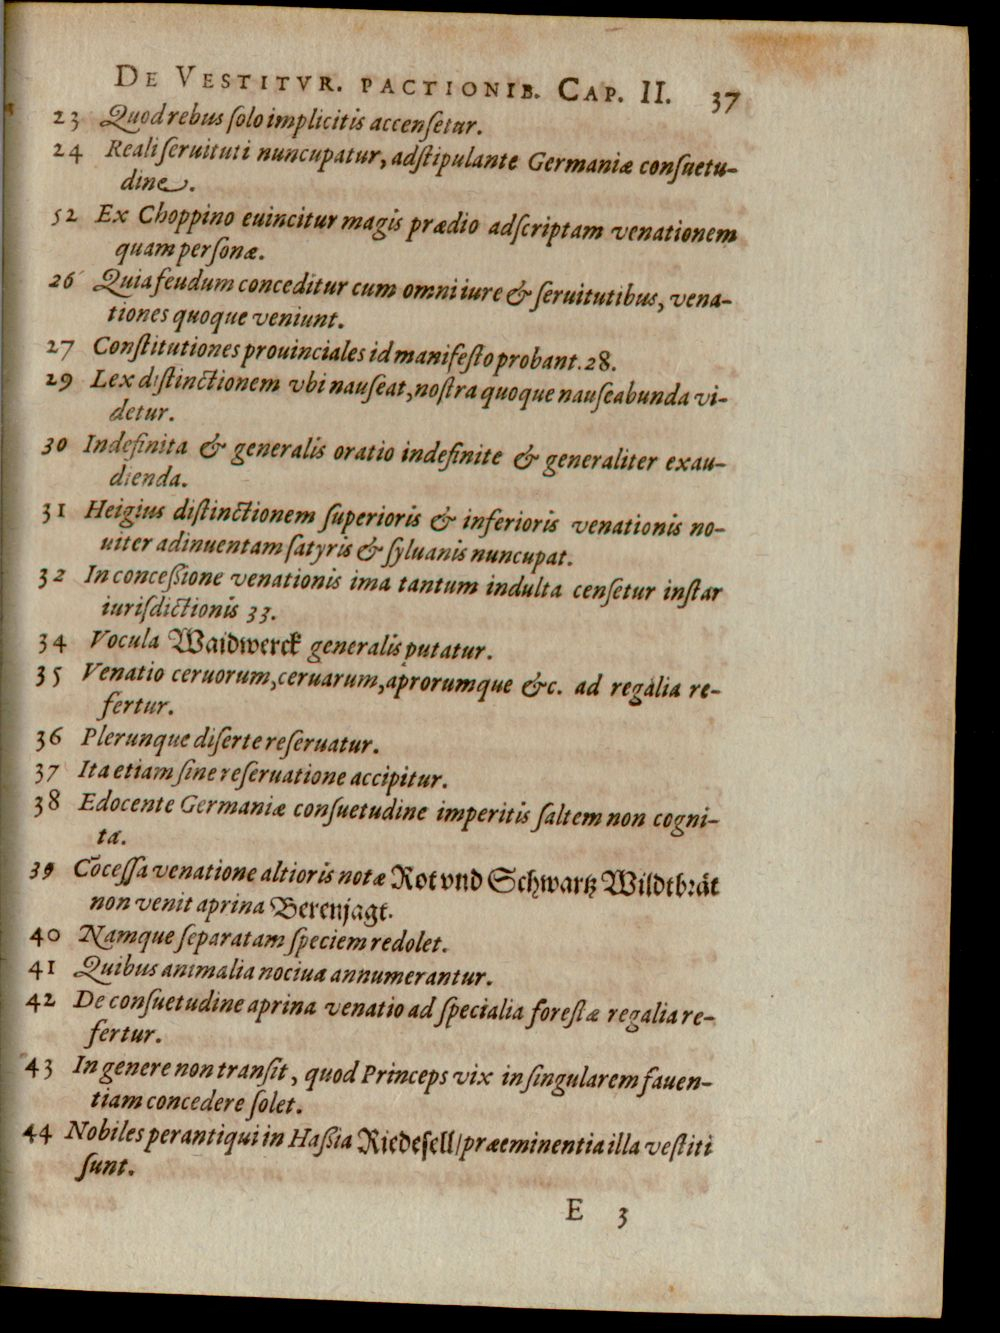 DE VESTITVR. PACTIONIB. CAP. II. 37
23 Quod rebus ſolo implicitis accenſetur.
24 Reali ſeruituti nuncupatur, adſtipulante Germaniæ conſuetu-
dine.
52 Ex Choppino euincitur magis prædio adſcriptam venationem
quam perſonæ.
26 Quia feudum conceditur cum omni iure & ſeruitutibus, vena-
tiones quoque veniunt.
27 Conſtitutiones prouinciales id manifeſto probant. 28.
29 Lex diſtinctionem vbi nauſeat, noſtra quoque nauſeabunda vi-
detur.
30 Indefinita & generalis oratio indefinite & generaliter exau-
dienda.
31 Heigius diſtinctionem ſuperioris & inferioris venationis no-
uiter adinuentam ſatyris & ſyluanis nuncupat.
32 In conceßione venationis ima tantum indulta cenſetur inſtar
iuriſdictionis 33.
34 Vocula Waidwerck generalis putatur.
35 Venatio ceruorum, ceruarum, aprorumque &c. ad regalia re-
fertur.
36 Plerunque diſerte reſeruatur.
37 Ita etiam ſine reſeruatione accipitur.
38 Edocente Germaniæ conſuetudine imperitis ſaltem non cogni-
ta.
39 Cōceſſa venatione altioris notæ Rot vnd Schwartz Wildtbrät
non venit aprina Berenjagt.
40 Namque ſeparatam ſpeciem redolet.
41 Quibus animalia nociua annumerantur.
42 De conſuetudine aprina venatio ad ſpecialia foreſtæ regalia re-
fertur.
43 In genere non tranſit, quod Princeps vix in ſingularem fauen-
tiam concedere ſolet.
44 Nobiles perantiqui in Haßia Riedeſell/ præeminentia illa veſtiti
ſunt.
E 3